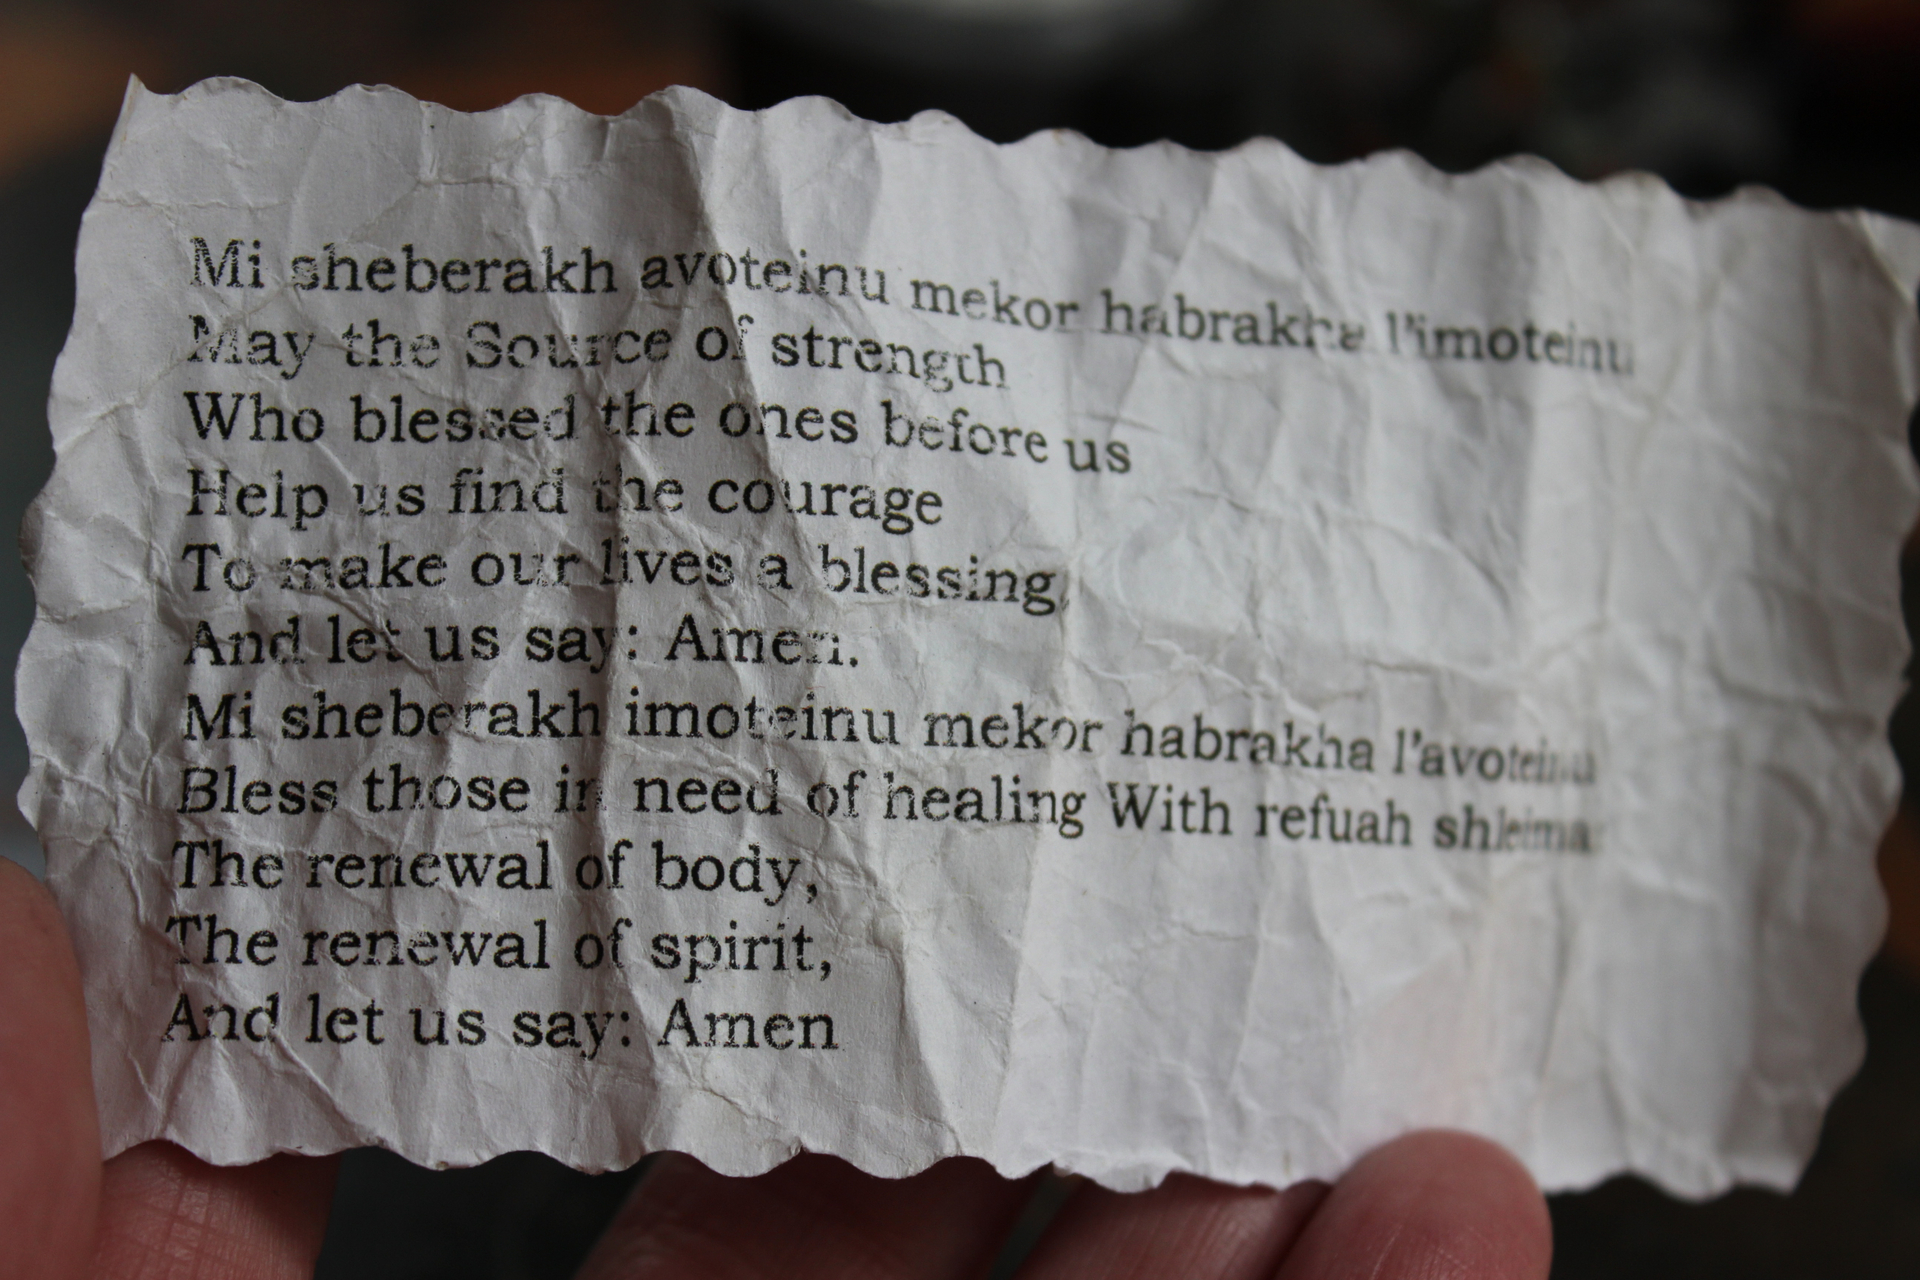 Mi sheberakh avoteinu mekor habrakha l'imoteinu
May the Source of strength
Who blessed the ones before us
Help us find the courage
To make our lives a blessing,
And let us say: Amen.
Mi sheberakh imoteinu mekor habrakha l'avoteinu
Bless those in need of healing With refuah shleima:
The renewal of body,
The renewal of spirit,
And let us say: Amen